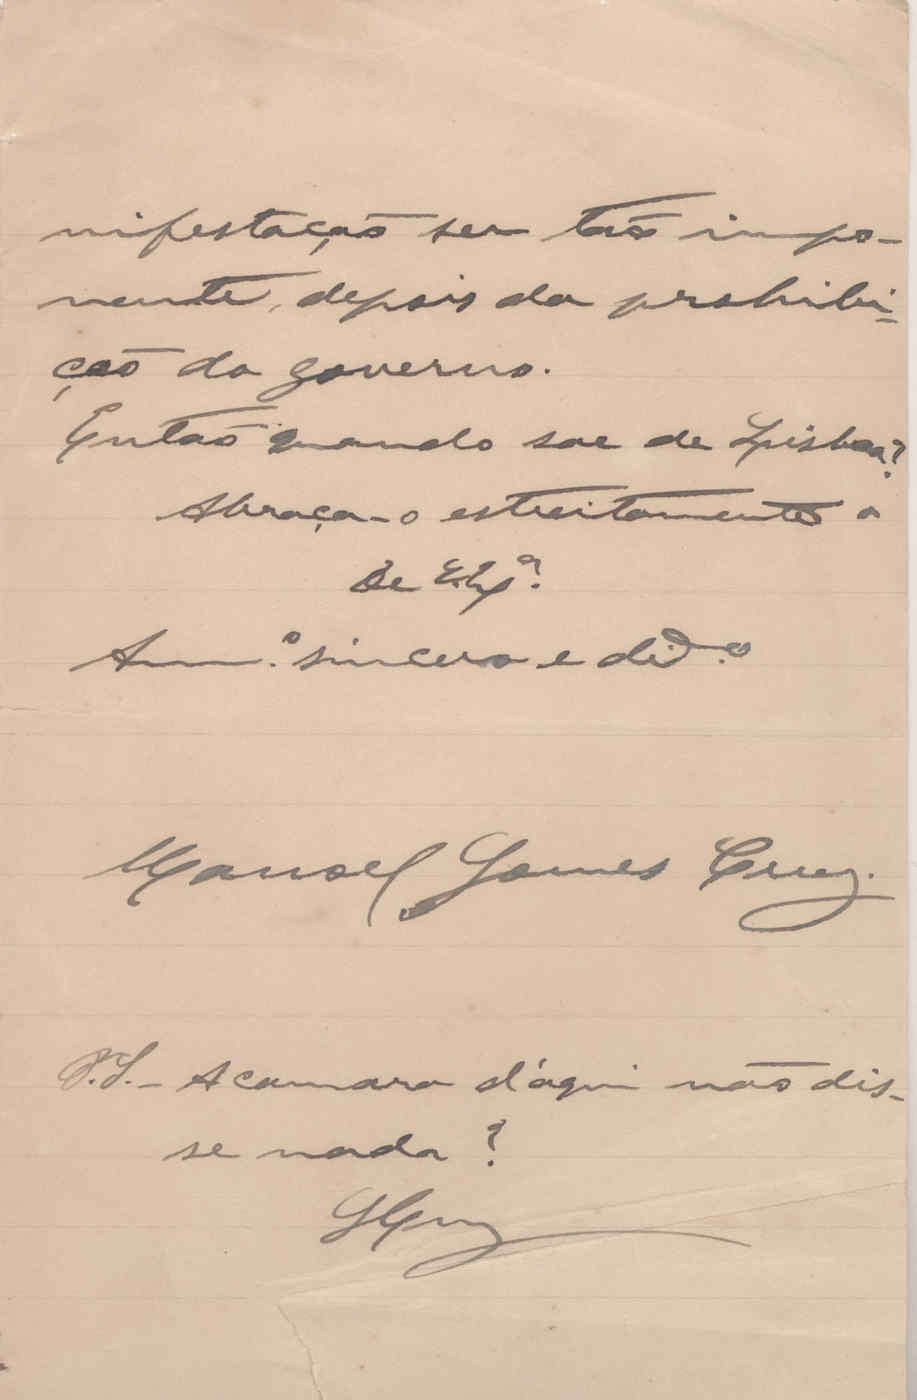 nifestação ser tão impo-
nente, depois da prohibi-
ção do governo.
Então quando sae de Lisboa?
Abraça-o estreitamente o
De V. Exª.
Am.º sincero e ded.º
Manoel Gomes Cruz.
P.S. - A camara d'aqui não dis-
se nada?
GCruz